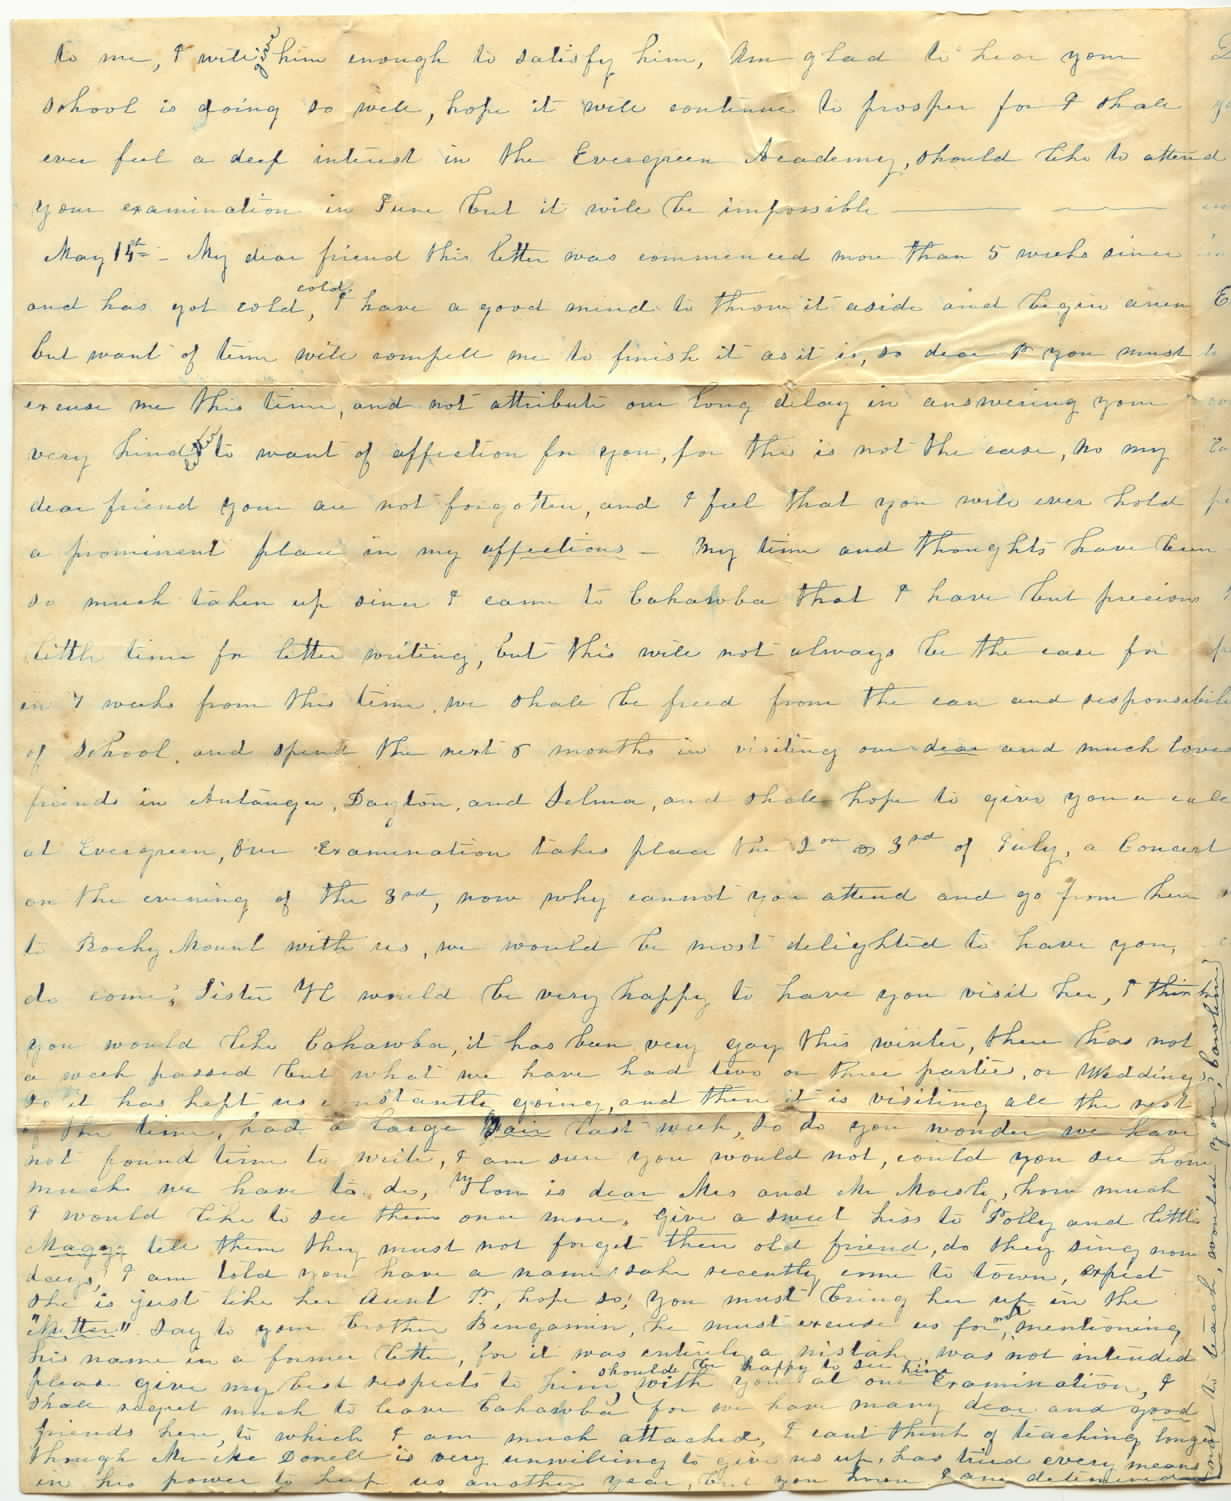 to me, I will give him enough to satisfy him, Am glad to hear your
school is going so well, hope it will continue to prosper for I shall
ever feel a deep interest in the Evergreen Academy, should like to attend
your examination in June but it will be impossible
May 14th - My dear friend this letter was commenced more than 5 weeks since
and has got cold, cold, I have a good mind to throw it aside and begin anew
but want of time will compell me to finish it as it is, so dear P you must
excuse me this time, and not attribute our long delay in answering your
very kind letter to want of affection for you, for this is not the case, No my
dear friend your are not forgotten, and I feel that you will ever hold
a prominent place in my affections - My time and thoughts have been
so much taken up since I came to Cahawba that I have but precious
little time for letter writing, but this will not always be the case for
in 7 weeks from this time, we shall be freed from the care and responsibili
of School, and spend the next 5 months in visiting our dear and much loved
friends in Autauga, Dayton, and Selma, and shall hope to give you a call
at Evergreen, Our Examination takes place the 2on & 3rd of July, a Concert
on the evening of the 3rd, now why cannot you attend and go from here
to Rocky Mount with us, we would be most delighted to have you,
do come, Sister H would be very happy to have you visit her, I think
you would like Cahawba, it has been very gay this winter, there has not
a week passed but what we have had two or three parties, or Weddings
so it has kept us constantly going, and then it is visiting all the rest
of the time, had a large Fair last week, so do you wonder we have
not found time to write, I am sure you would not, could you see how
much we have to do, How is dear Mrs and Mr Mosely, how much
I would like to see them once more, Give a sweet kiss to Polly and little
Maggy tell them they must not forget their old friend, do they sing now
days, I am told you have a name sake recently come to town, expect
she is just like her Aunt P., hope so, you must bring her up in the
"Nutter" Say to your brother Bengamin, he must excuse us for not mentioning
his name in a former letter, for it was entirely a mistake, was not intended
please give my best respects to him, should be happy to see him with you at our Examination, I
shall regret much to leave Cahawba for we have many dear and good
friends here, to which I am much attached, I cant think of teaching longer
though Mr Mc Donell is very unwilling to give us up, has tried every means
in his power to keep us another year, but you know I am determined
not to teach, would you Caroline